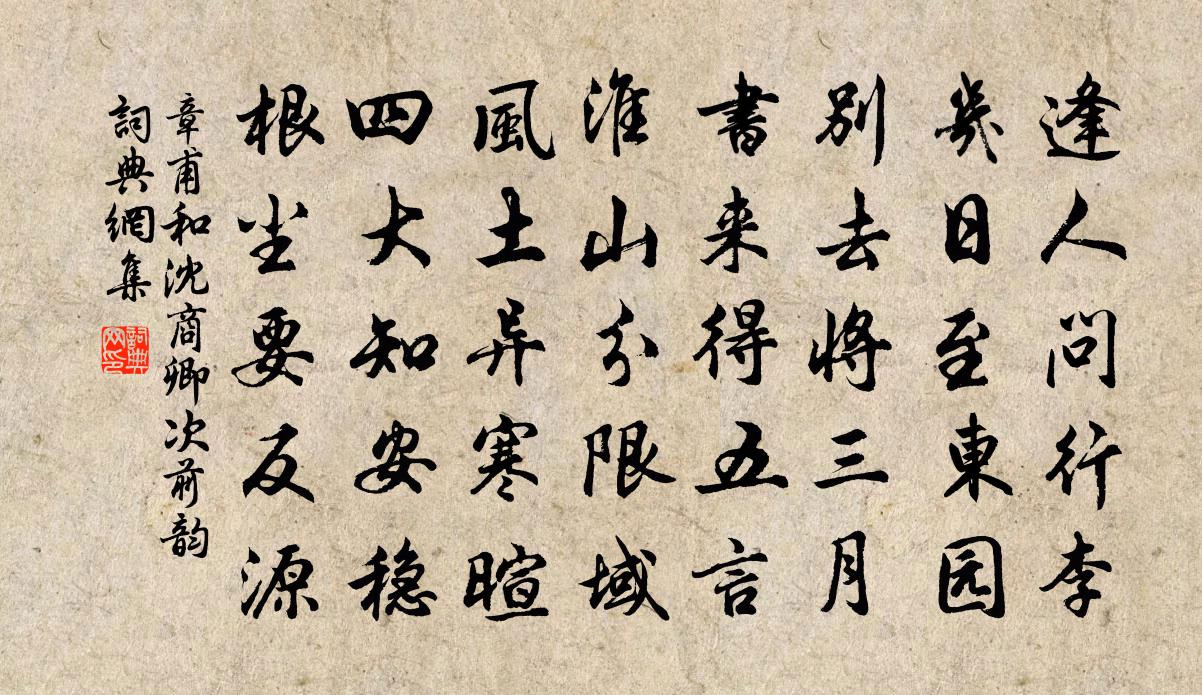 逢人问行李
幾日至東园
别去将三月
書来得五言
淮山分限域
風土异寒暄
四大知安稳
根尘要反源
章甫和沈商卿次前韵
詞典網集
詞典网印